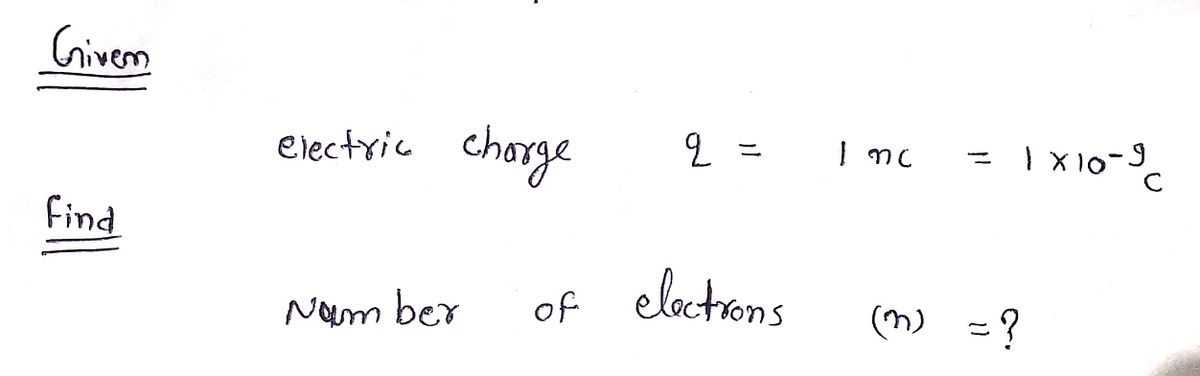 Given
electric charge q = 1 nc = 1 × 10-9 c
Find
Number of electrons (n) = ?